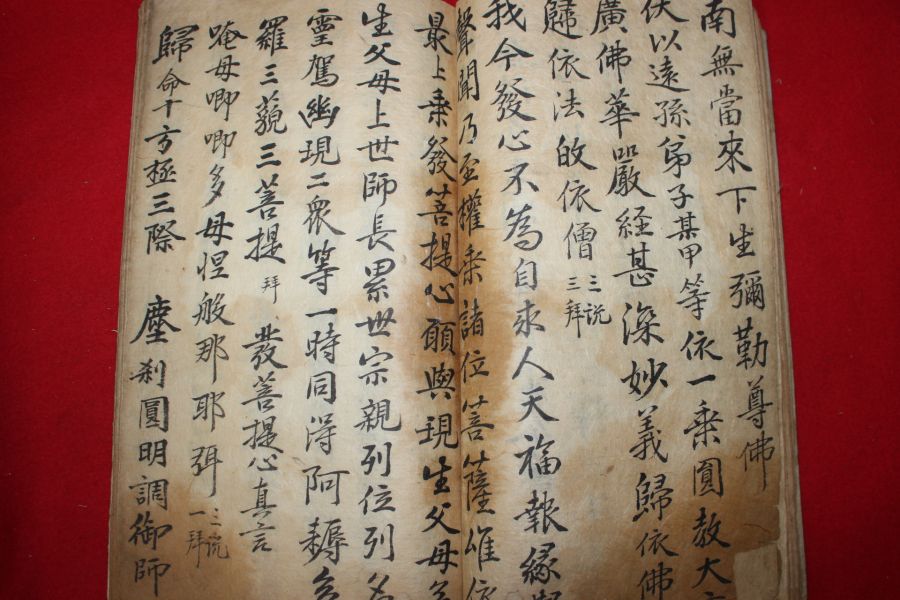 南無當來下生彌勒尊佛
伏以遠孫弟子某甲等依一乘圓教大
廣佛華嚴経甚深妙義歸依佛
歸依法皈依僧 三说三拜
我今發心不為自求人天福報緣
聲聞乃至權乘諸位菩薩雄依
最上乘發菩提心願與現生父母
生父母上世師長累世宗親列位列
靈駕幽現二衆等一時同得阿耨多
羅三藐三菩提 拜 發菩提心真言
唵母唧唧多母怛般那耶弭 三说一拜
歸命十方極三際 塵刹圓明調御師